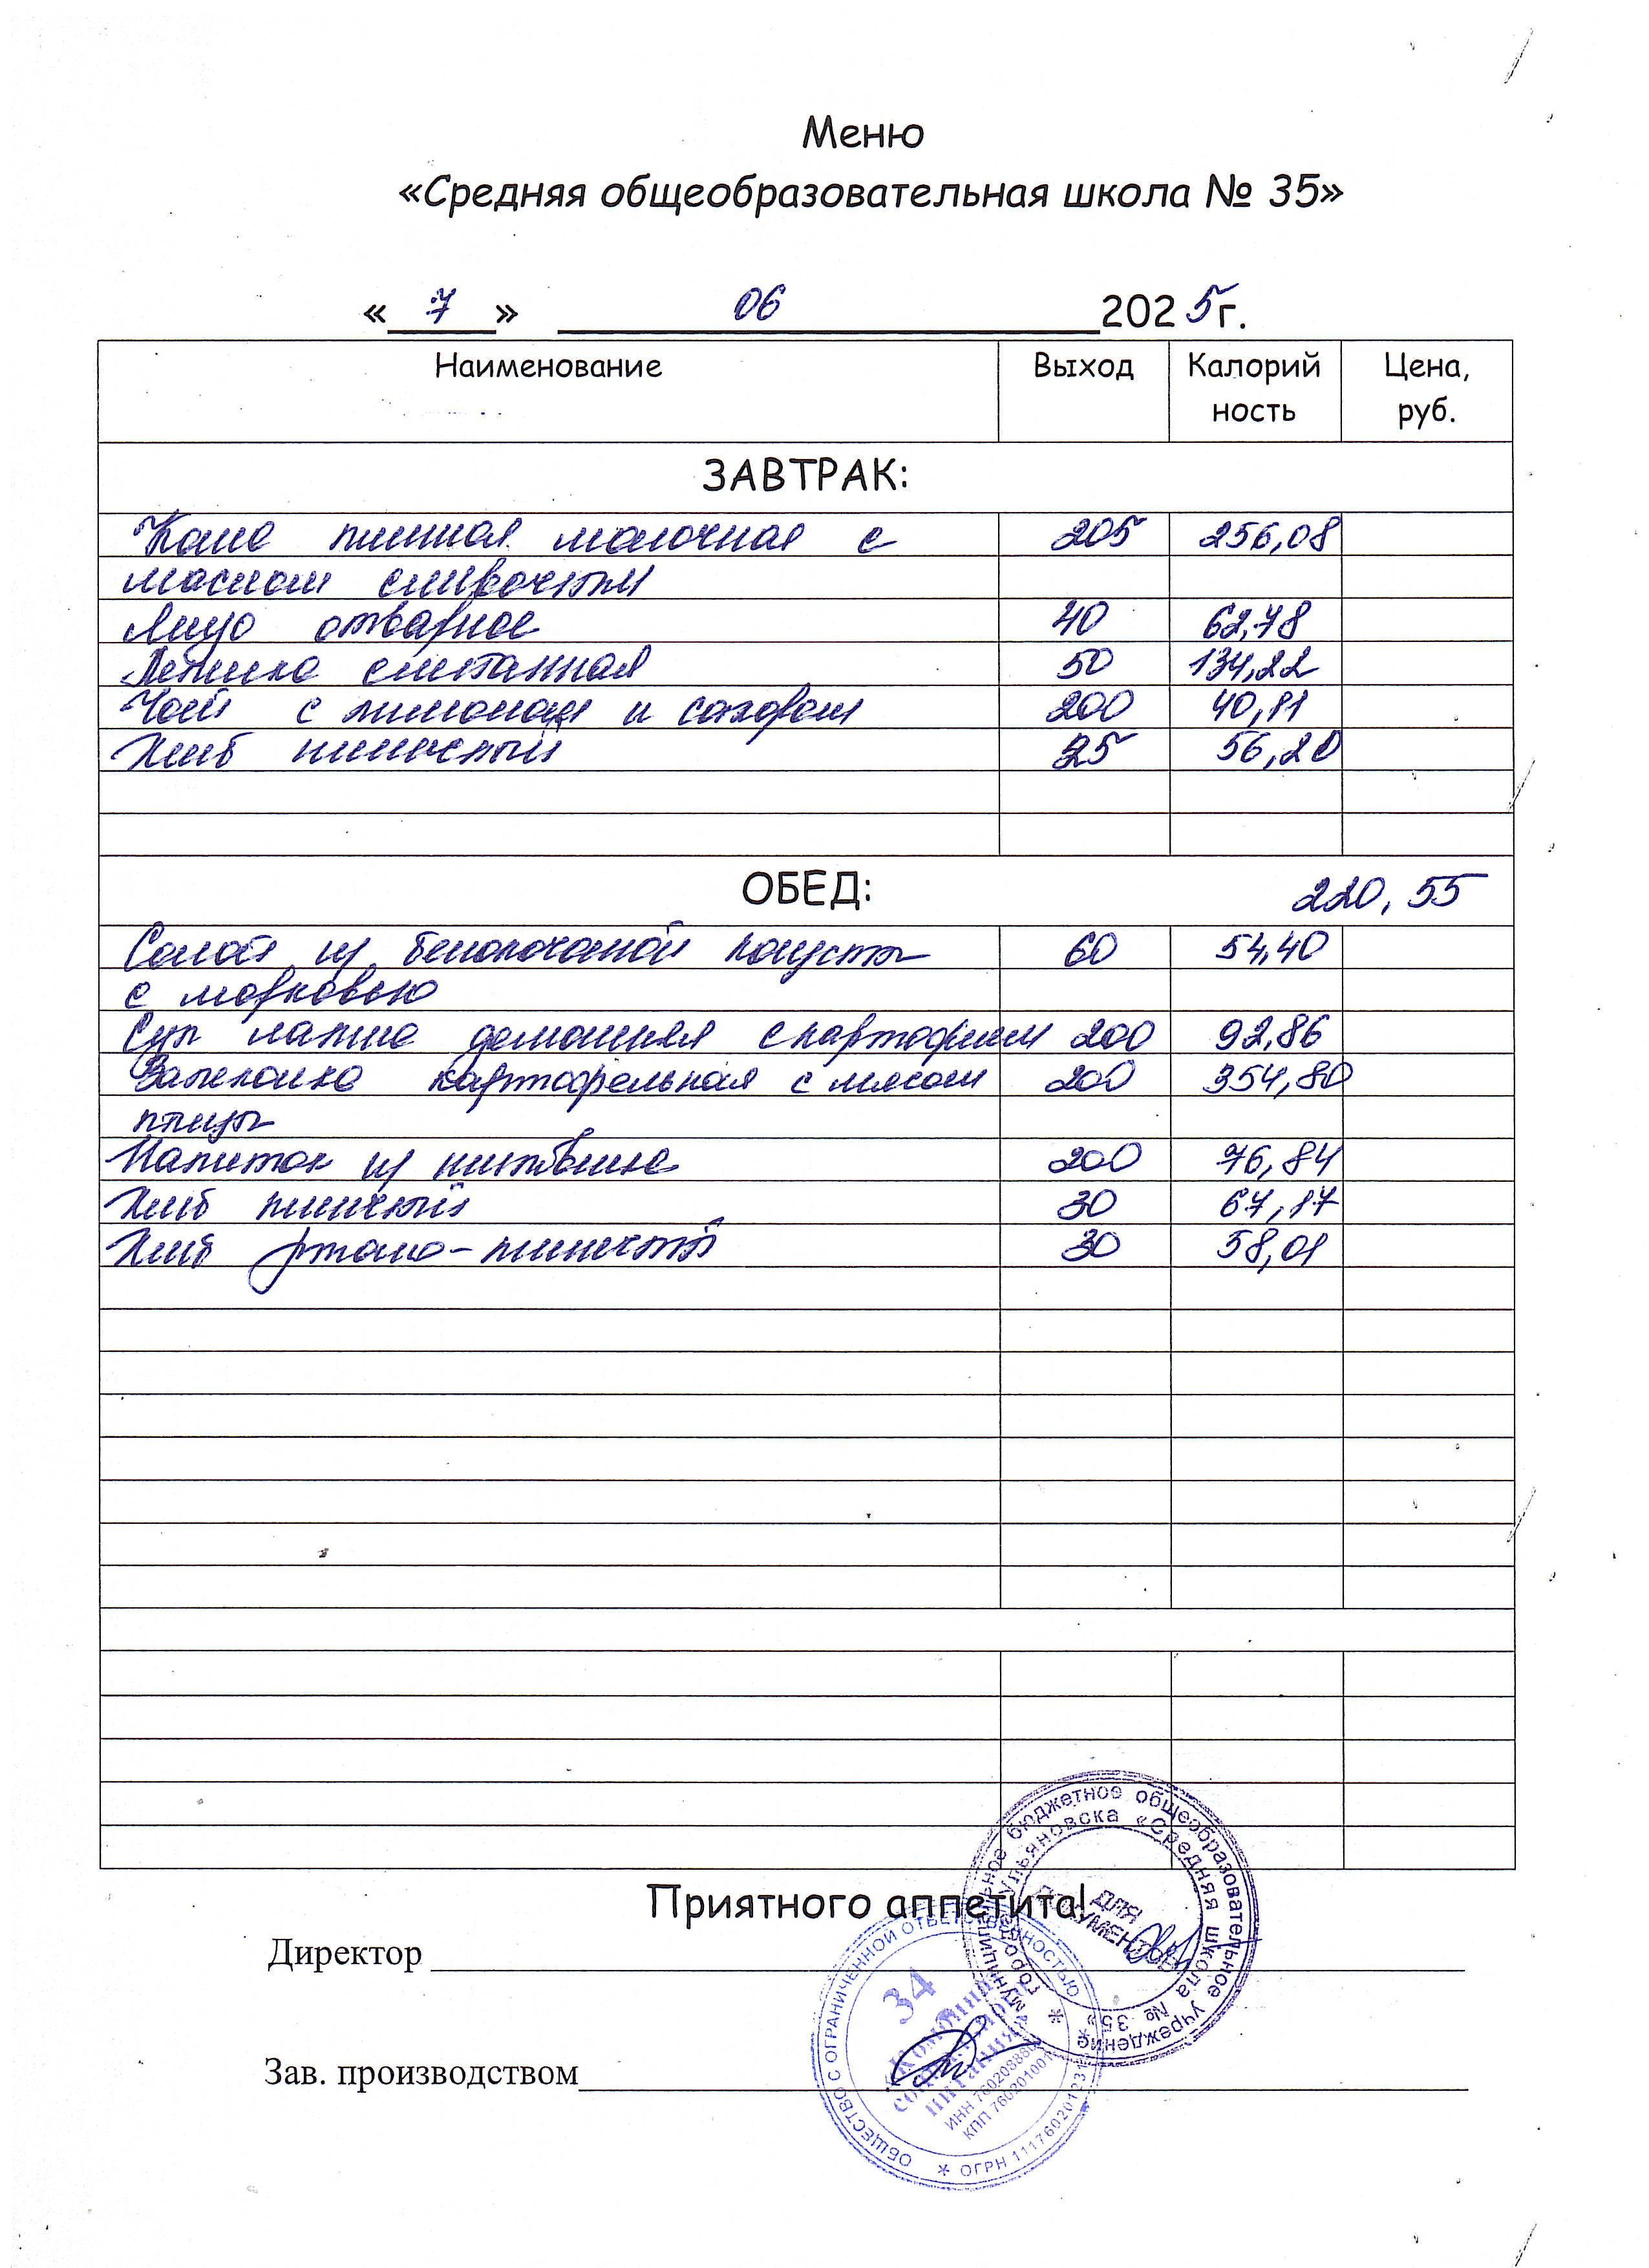 Меню
«Средняя общеобразовательная школа № 35»
« 7 » 06 2025г.
Наименование Выход Калорий Цена,
ность руб.
ЗАВТРАК:
Каша пшенная молочная с 205 256,08
маслом сливочным
Яйцо отварное 40 62,78
Лепешка сметанная 50 134,22
Чай с лимоном и сахаром 200 40,81
Хлеб пшеничный 25 56,20
ОБЕД: 220,55
Салат из белокочаной капусты 60 54,40
с морковью
Суп лапша домашняя с картофелем 200 92,86
Запеканка картофельная с мясом 200 354,80
птицы
Напиток из 200 76,84
Хлеб пшеничный 30 67,17
Хлеб ржано-пшеничный 30 58,01
Приятного аппетита!
Директор
Зав. производством
муниципальное бюджетное общеобразовательное учреждение
города Ульяновска «Средняя школа № 35»
ДЛЯ
ДОКУМЕНТОВ
ОБЩЕСТВО С ОГРАНИЧЕННОЙ ОТВЕТСТВЕННОСТЬЮ
34
питания»
ИНН 760208880
КПП 760201001
ОГРН 1117602012